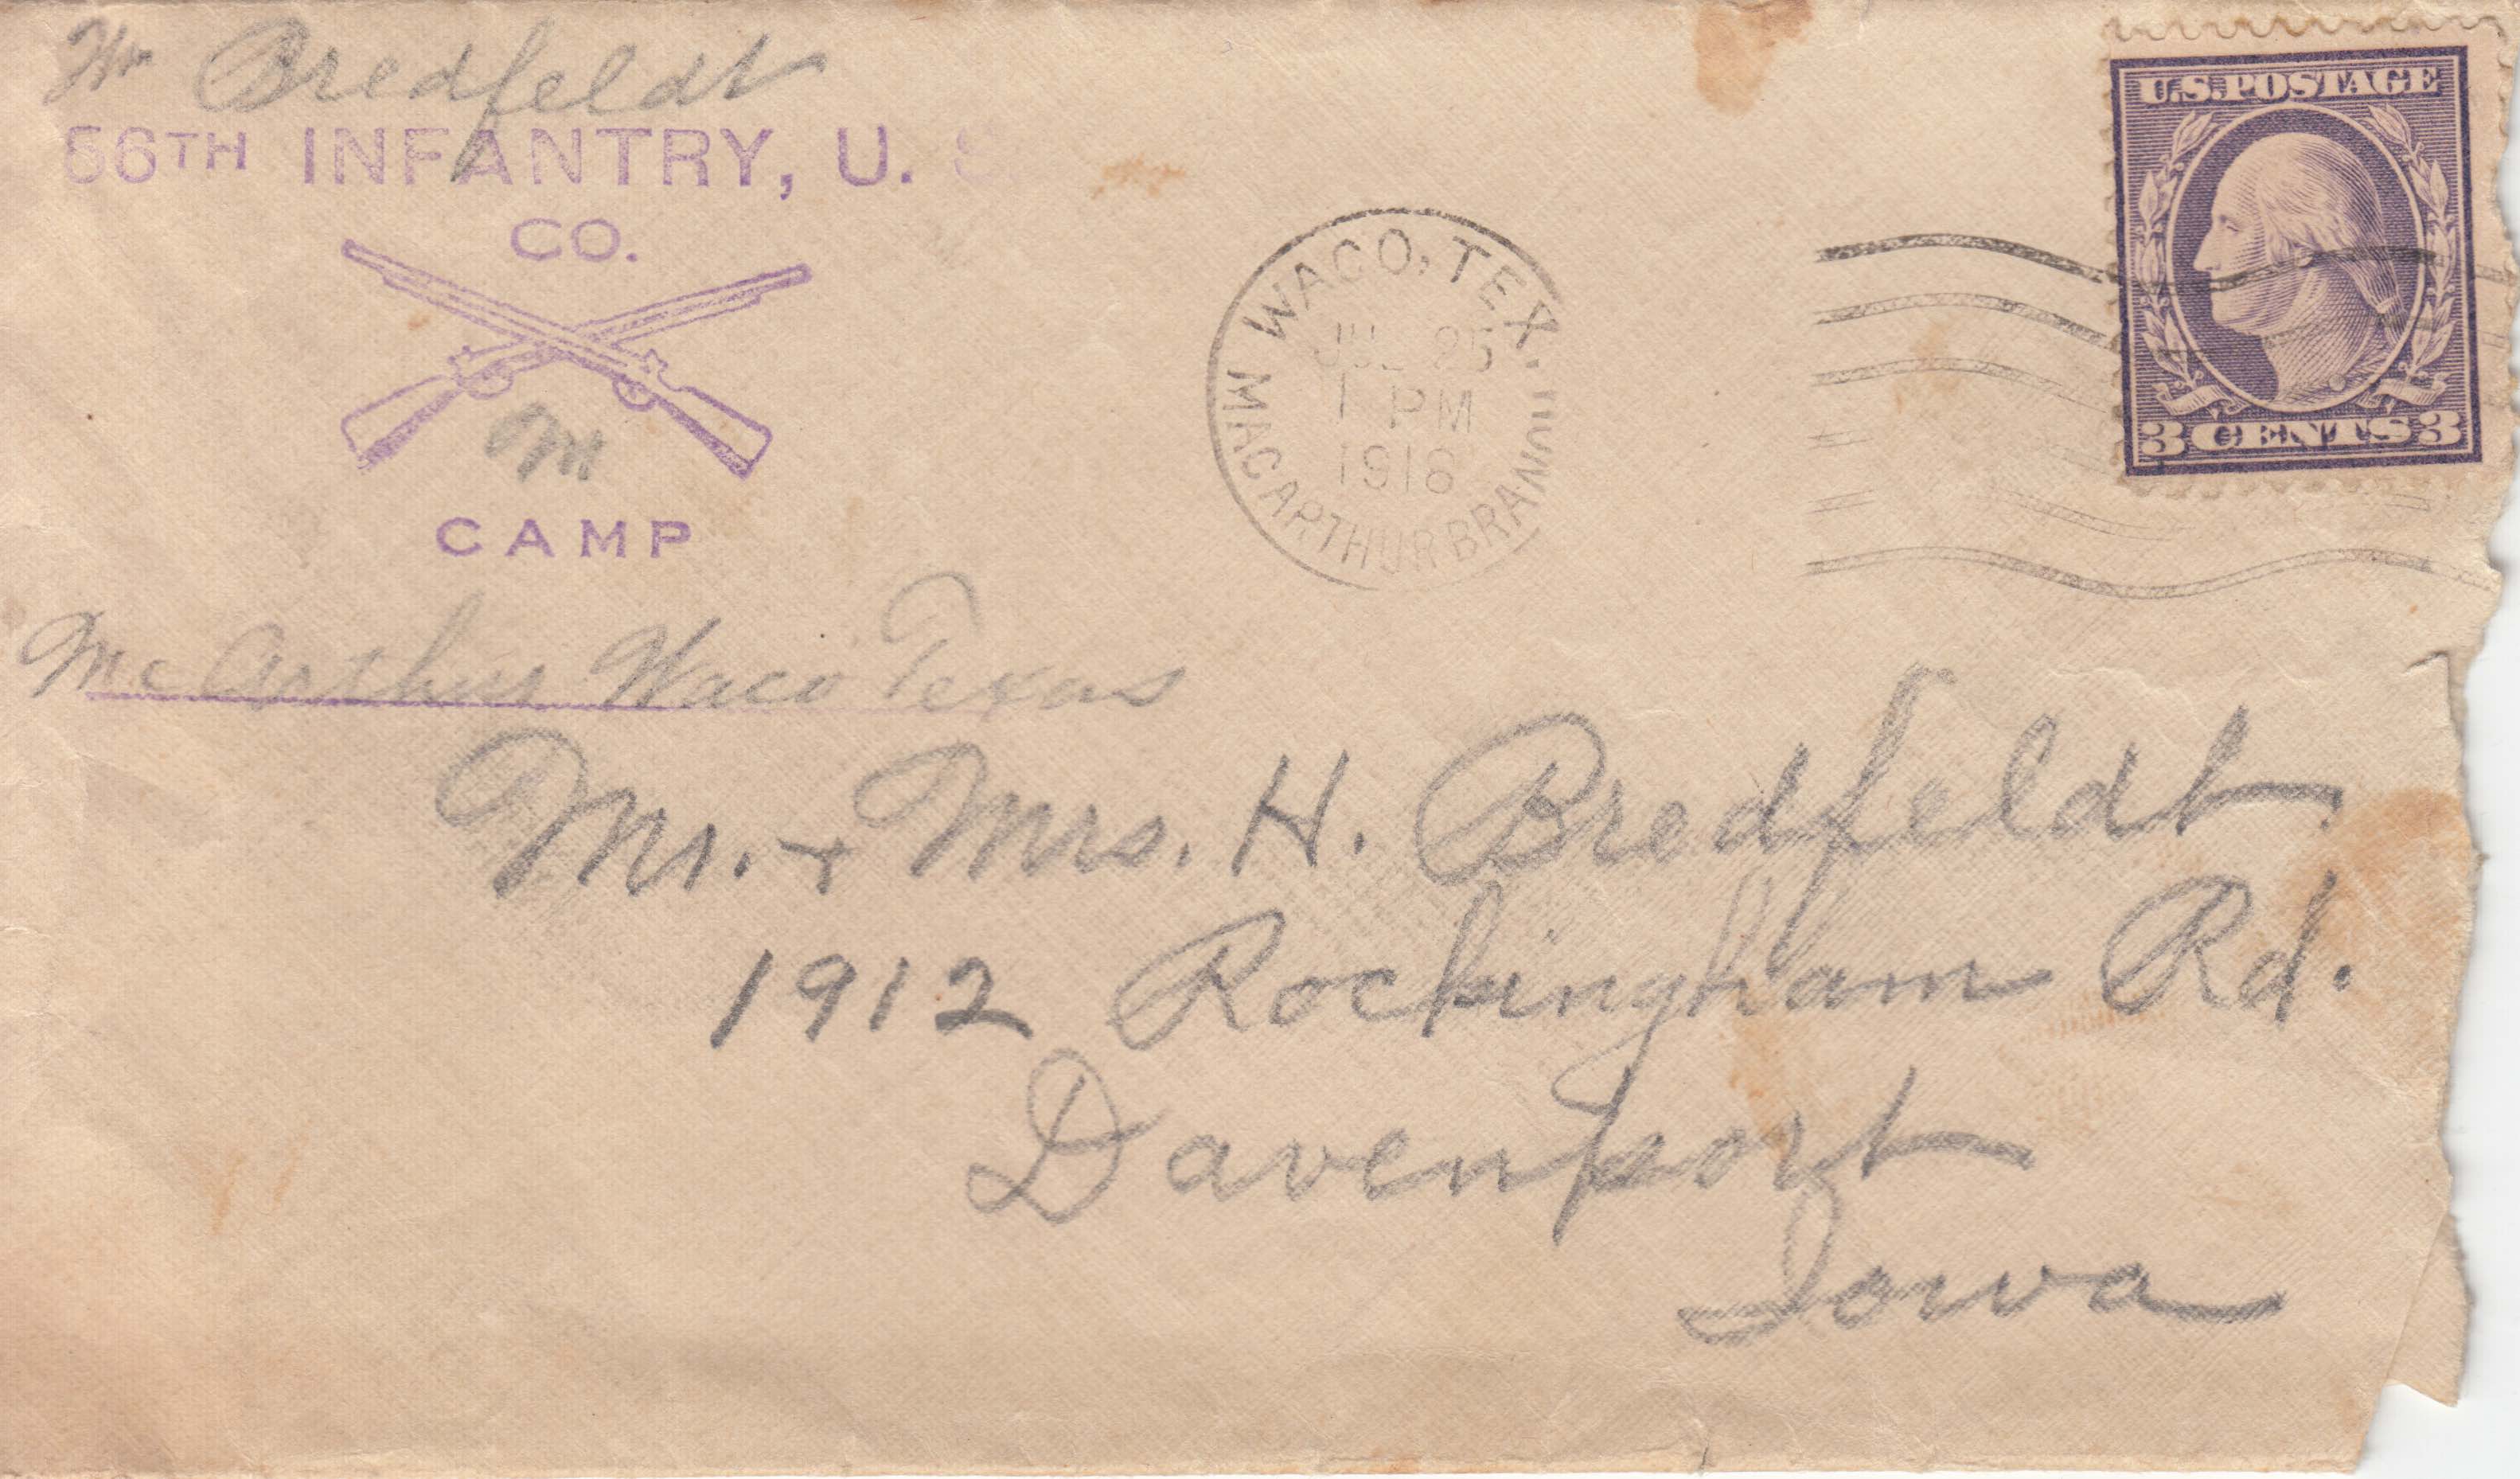 Wm Bredfeldt
56TH INFANTRY, U. S.
CO.
M
CAMP
McArthur Waco Texas
WACO, TEX.
JUL 25
1 PM
1918
MACARTHUR BRANCH
U.S. POSTAGE
3 CENTS 3
Mr. + Mrs. H. Bredfeldt
1912 Rockingham Rd.
Davenport
Iowa